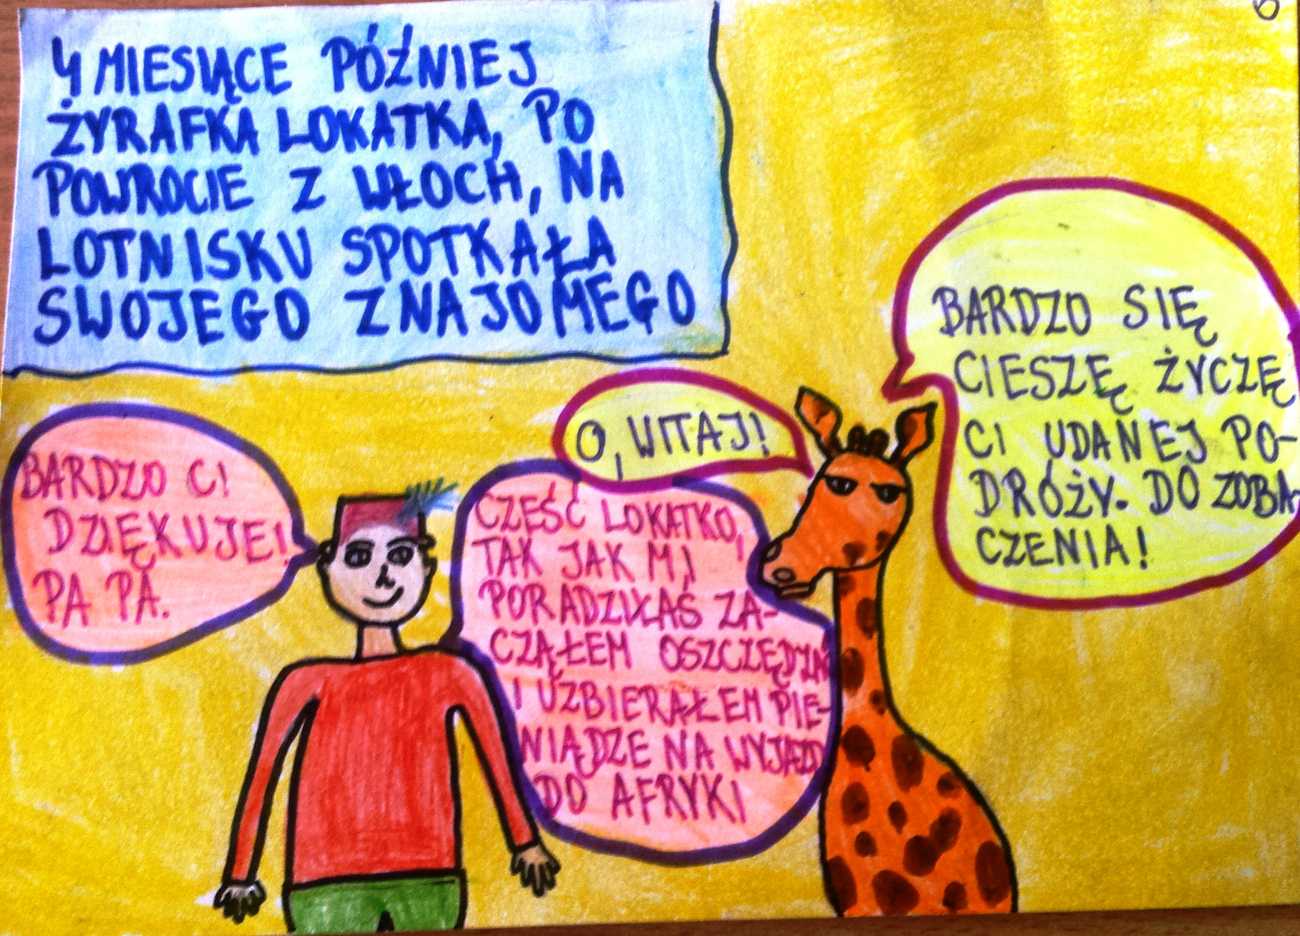 4 MIESIĄCE PÓŹNIEJ
ŻYRAFKA LOKATKA, PO
POWROCIE Z WŁOCH, NA
LOTNISKU SPOTKAŁA
SWOJEGO ZNAJOMEGO
O, WITAJ!
CZEŚĆ LOKATKO,
TAK JAK MI
PORADZIŁAŚ ZA-
CZĄŁEM OSZCZĘDZAĆ
I UZBIERAŁEM PIE-
NIĄDZE NA WYJAZD
DO AFRYKI
BARDZO SIĘ
CIESZĘ ŻYCZĘ
CI UDANEJ PO-
DRÓŻY. DO ZOBA-
CZENIA!
BARDZO CI
DZIĘKUJE!
PA PA.